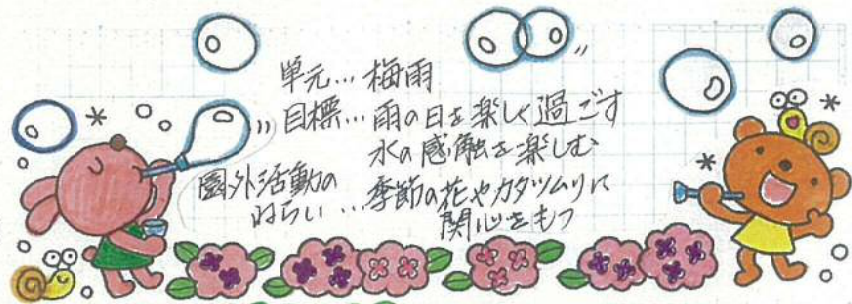 単元… 梅雨
目標… 雨の日を楽しく過ごす
水の感触を楽しむ
園外活動の
ねらい… 季節の花やカタツムリに
関心をもつ